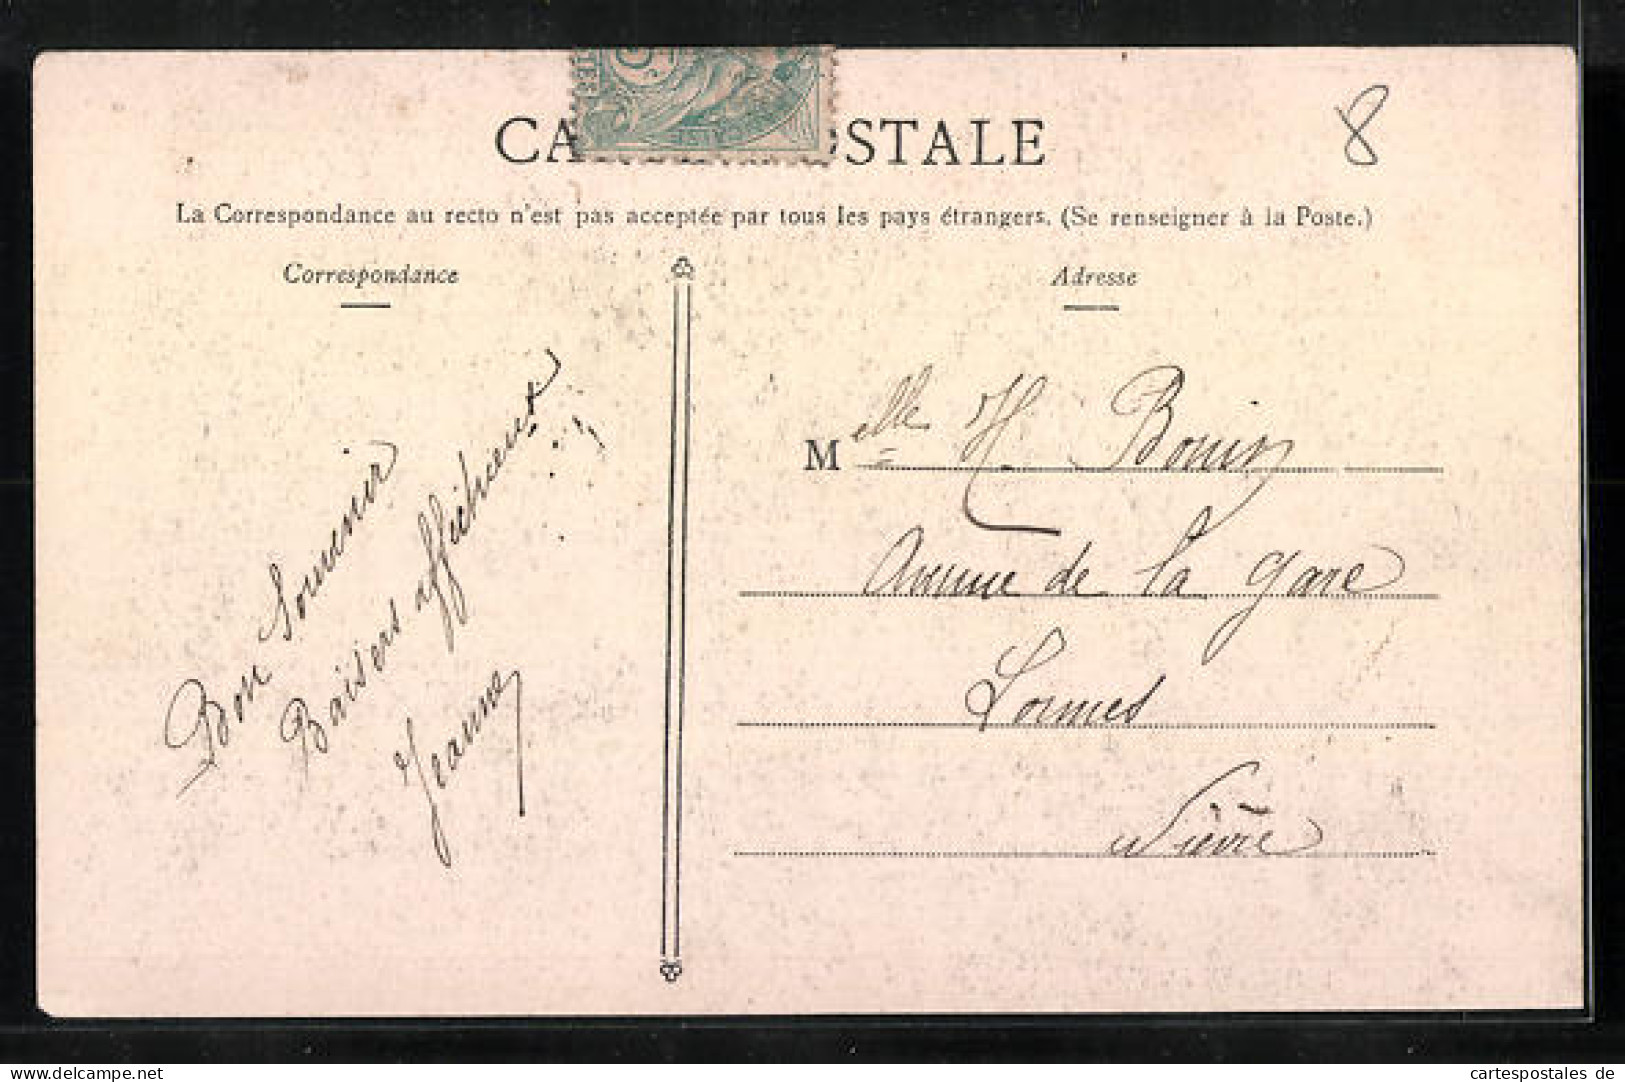 CA OSTALE
8
La Correspondance au recto n'est pas acceptée par tous les pays étrangers. (Se renseigner à la Poste.)
Correspondance
Adresse
Bon Souvenir
Baisers affectueux
Jeanne
Melle H. Bouin
Avenue de la gare
Lormes
Nièvre
cartespostales de